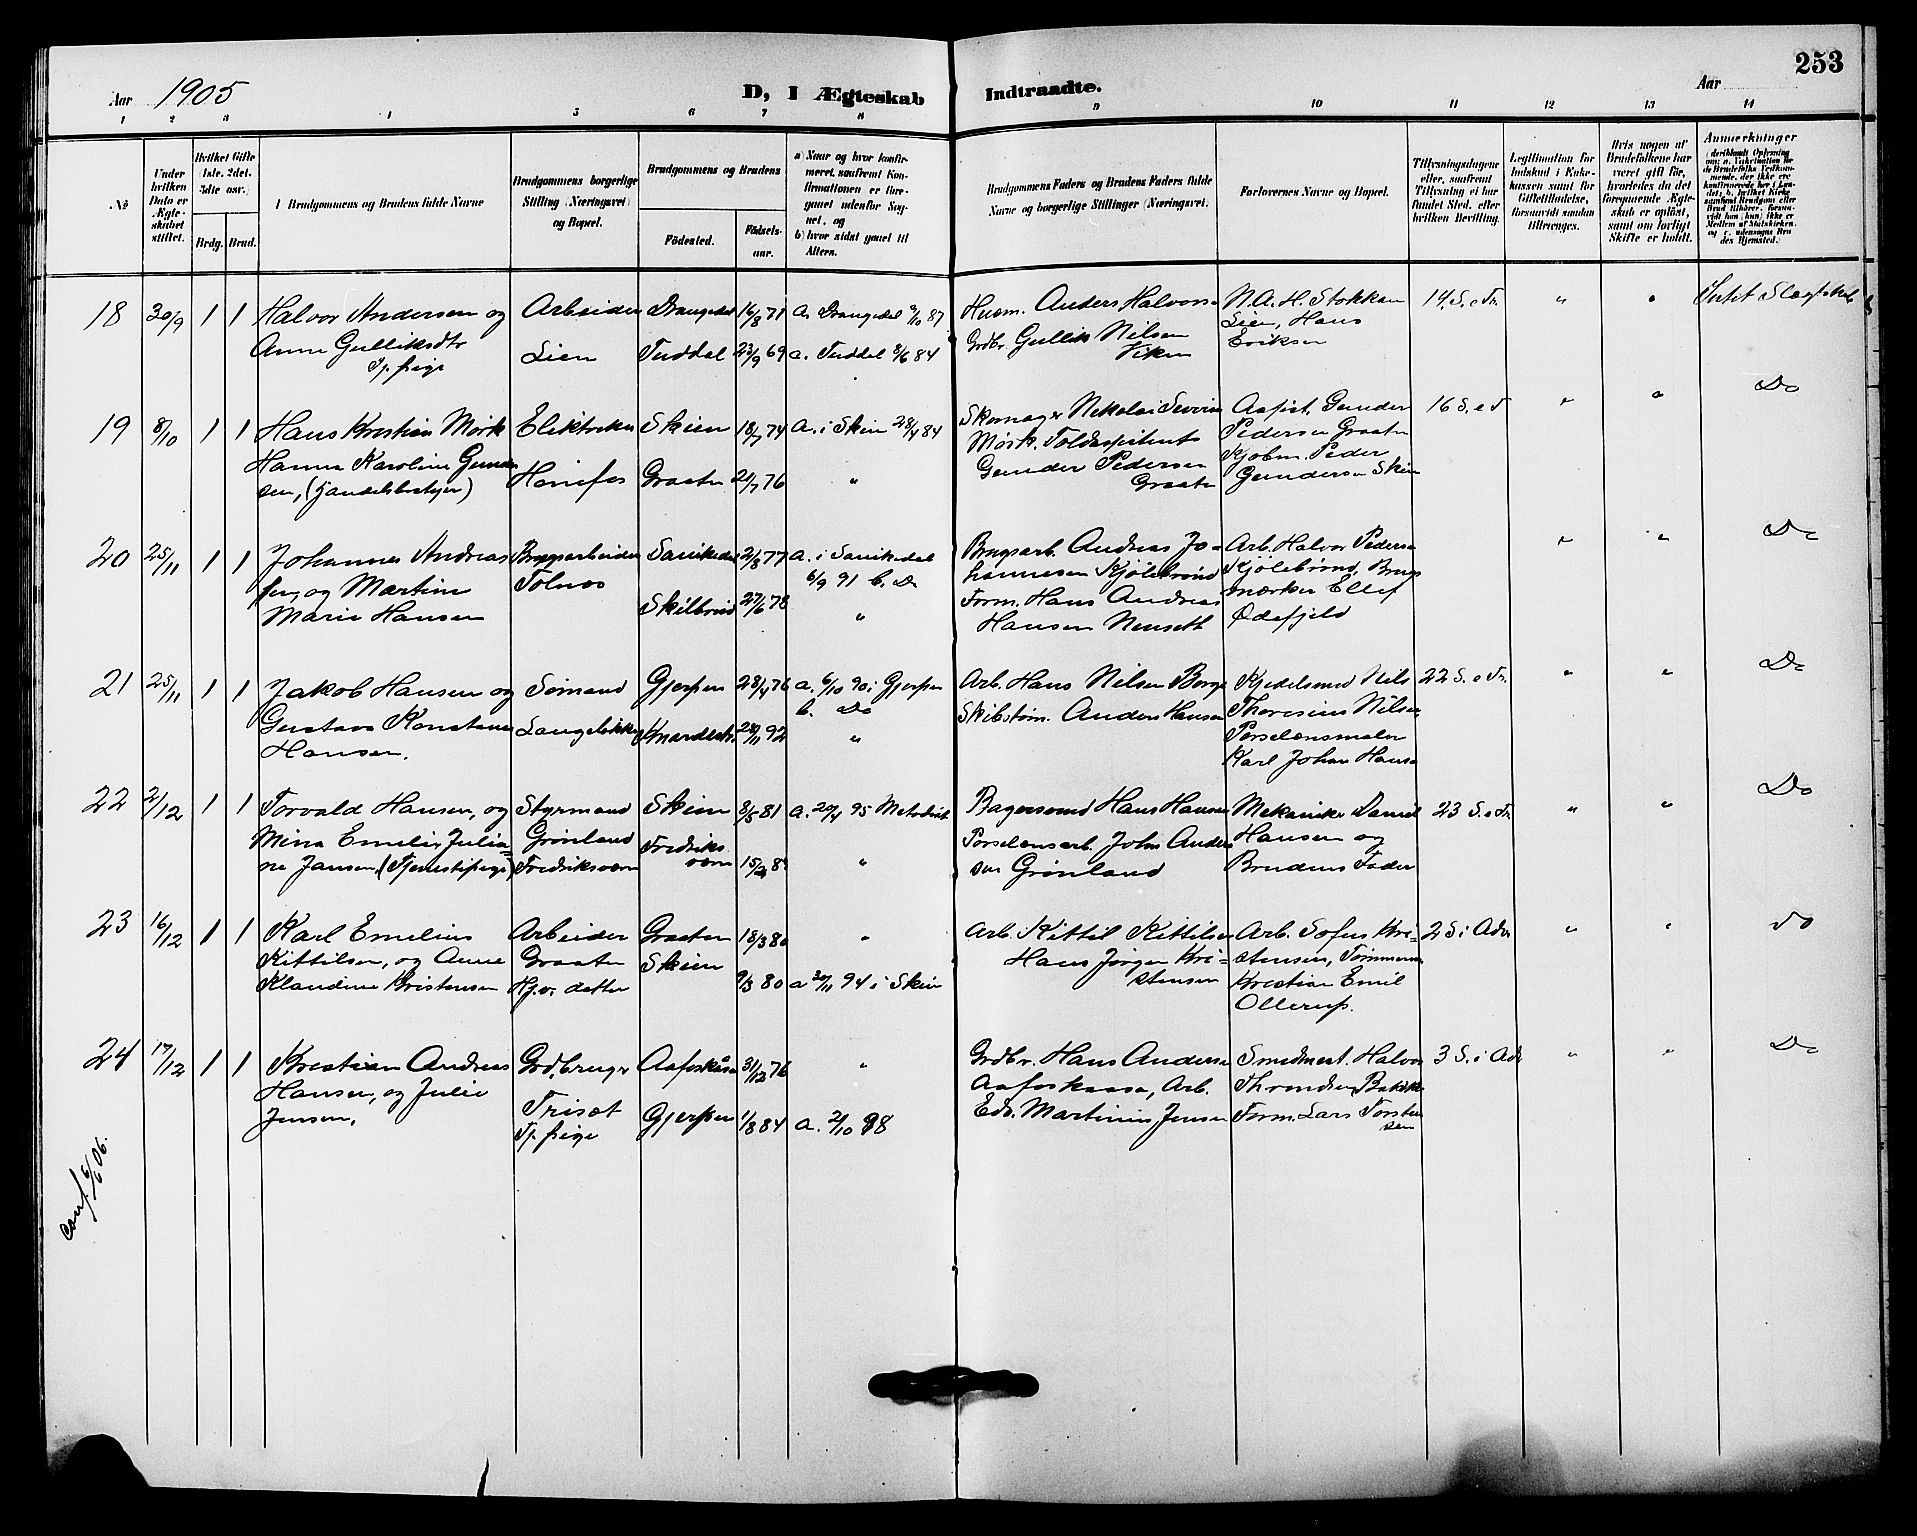 253
Aar 1905
D, I Ægteskab Indtraadte.
Aar
1 2 3 4 5 6 7 8 9 10 11 12 13 14
No
Under hvilken Dato er Ægteskabet stiftet.
Hvilket Gifte (1ste, 2det, 3die osv.)
Brdg. Brud.
Brudgommens og Brudens fulde Navne
Brudgommens borgerlige Stilling (Næringsvei) og Bopæl.
Brudgommens og Brudens
Födested. Födselsaar.
a) Naar og hvor konfirmeret, saafremt Konfirmationen er foregaaet udenfor Sognet, og
b) hvor sidst gaaet til Alters.
Brudgommens Faders og Brudens Faders fulde Navne og borgerlige Stillinger (Næringsvei).
Forlovernes Navne og Bopæl.
Tillysningsdagene eller, saafremt Tillysning ei har fundet Sted, efter hvilken Bevilling.
Legitimation for Indskud i Enkekassen samt for Giftetilladelse, forsaavidt saadan tiltrænges.
Hvis nogen af Brudefolkene har været gift för, hvorledes da det foregaaende Ægteskab er oplöst, samt om lovligt Skifte er holdt.
Anmerkninger
18 30/9 1 1 Halvor Andersen og Arbeider Drangedal 16/8 71 a. Drangedal 2/10 87 Husm. Anders Halvors. N. A. H. Stokkan 14 S. e Tr. " " Intet Slægtskab
Anne Gulliksdtr Lien Tuddal 23/9 69 a. Tuddal 8/6 84 Grdbr. Gullik Nilsen Lien, Hans
Tj. pige Viken Eriksen
19 8/10 1 1 Hans Kristian Mørk Elektriker Skien 18/7 74 a. i Skien 28/4 84 Skomager Nikolai Severin Assist. Gunder 16 S. e T " " Do
Hanna Karoline Gunder Mørk. Toldassistent Pedersen Graaten
sen, (Handelsbestyer) Hønefos Graaten 21/7 76 " Gunder Pedersen Kjøbm. Peder
Graaten Gundersen Skien
20 25/11 1 1 Johannes Andreas Brugsarbeider Sanikedal 2/8 77 a. i Sanikedal Brugsarb. Andreas Jo- Arb. Halvor Peders. " " Do
sen, og Martine Tolnes 6/9 91 b. Do hannesen Kjølebrønd Kjølebrønd, Brugs
Marie Hansen Skilbred 27/6 78 " Form. Hans Andreas mærker Ellef
Hansen Nenseth Ødefjeld
21 25/11 1 1 Jakob Hansen og Sømand Gjerpen 28/4 76 a. 6/10 90 i Gjerpen Arb. Hans Nilsen Borge Kjedelsmed Nils 22 S. e Tr. " " Do
Gustava Konstanse Langeløkke b. Do Skibstøm. Anders Hansen Thoresius Nilsen
Hansen. Knardalstr. 28/11 92 " Porselænsmaler
Karl Johan Hans.
22 2/12 1 1 Torvald Hansen, og Styrmand Skien 8/5 81 a. 20/4 95 Metodist Bagersvend Hans Hansen Mekaniker Daniel 23 S. e Tr. " " Do
Mina Emelie Julia- Grønland Fredriks Porselensarb. John Anders Hansen og
ne Jansen, (Tjenestepige) Fredriksværn værn " sen Grønland Brudens Fader
23 16/12 1 1 Karl Emelius Arbeider Graaten 18/3 80 " Arb. Kittil Kittilsen Arb. Sofus Kri- 2 S i Adv. " " do
Kittilsen, og Anne Graaten Skien Hans Jørgen Kri- stensen, Tømmerm.
Klaudine Kristensen Hj.v. datter 9/3 80 a 30/11 94 i Skien stensen Kristian Emil
Ollerup.
24 17/12 1 1 Kristian Andreas Grd.bruger Aafoskåsa 31/12 76 " Grdbr. Hans Anders. Smedmest. Halvor 3 S. i Adv " " Do
Hansen, og Julie Aafoskaasa, Arb. Throndsen Bakke
Jensen. Trisæt Gjerpen 1/8 84 a. 2/10 98 Edv. Martinius Jensen Form. Lars Torsten
Tj. pige sen
conf. 6/6 06.